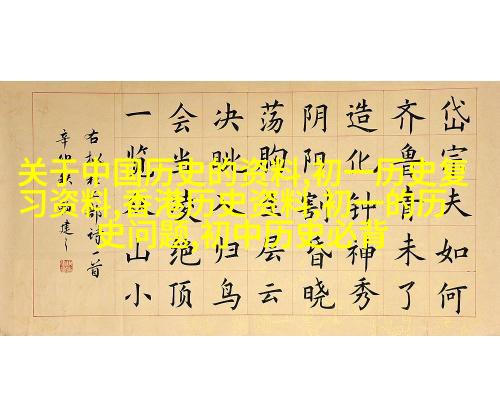 关于中国历史的资料,初一历史复
习资料,香港历史资料,初一的历
史问题,初中历史必背
岱宗夫如何
齐鲁青未了
造化针神秀
阴阳割昏晓
荡胸生层云
决眦入归鸟
会当凌绝顶
一览众山小
右 部诗一首
辛卯秋